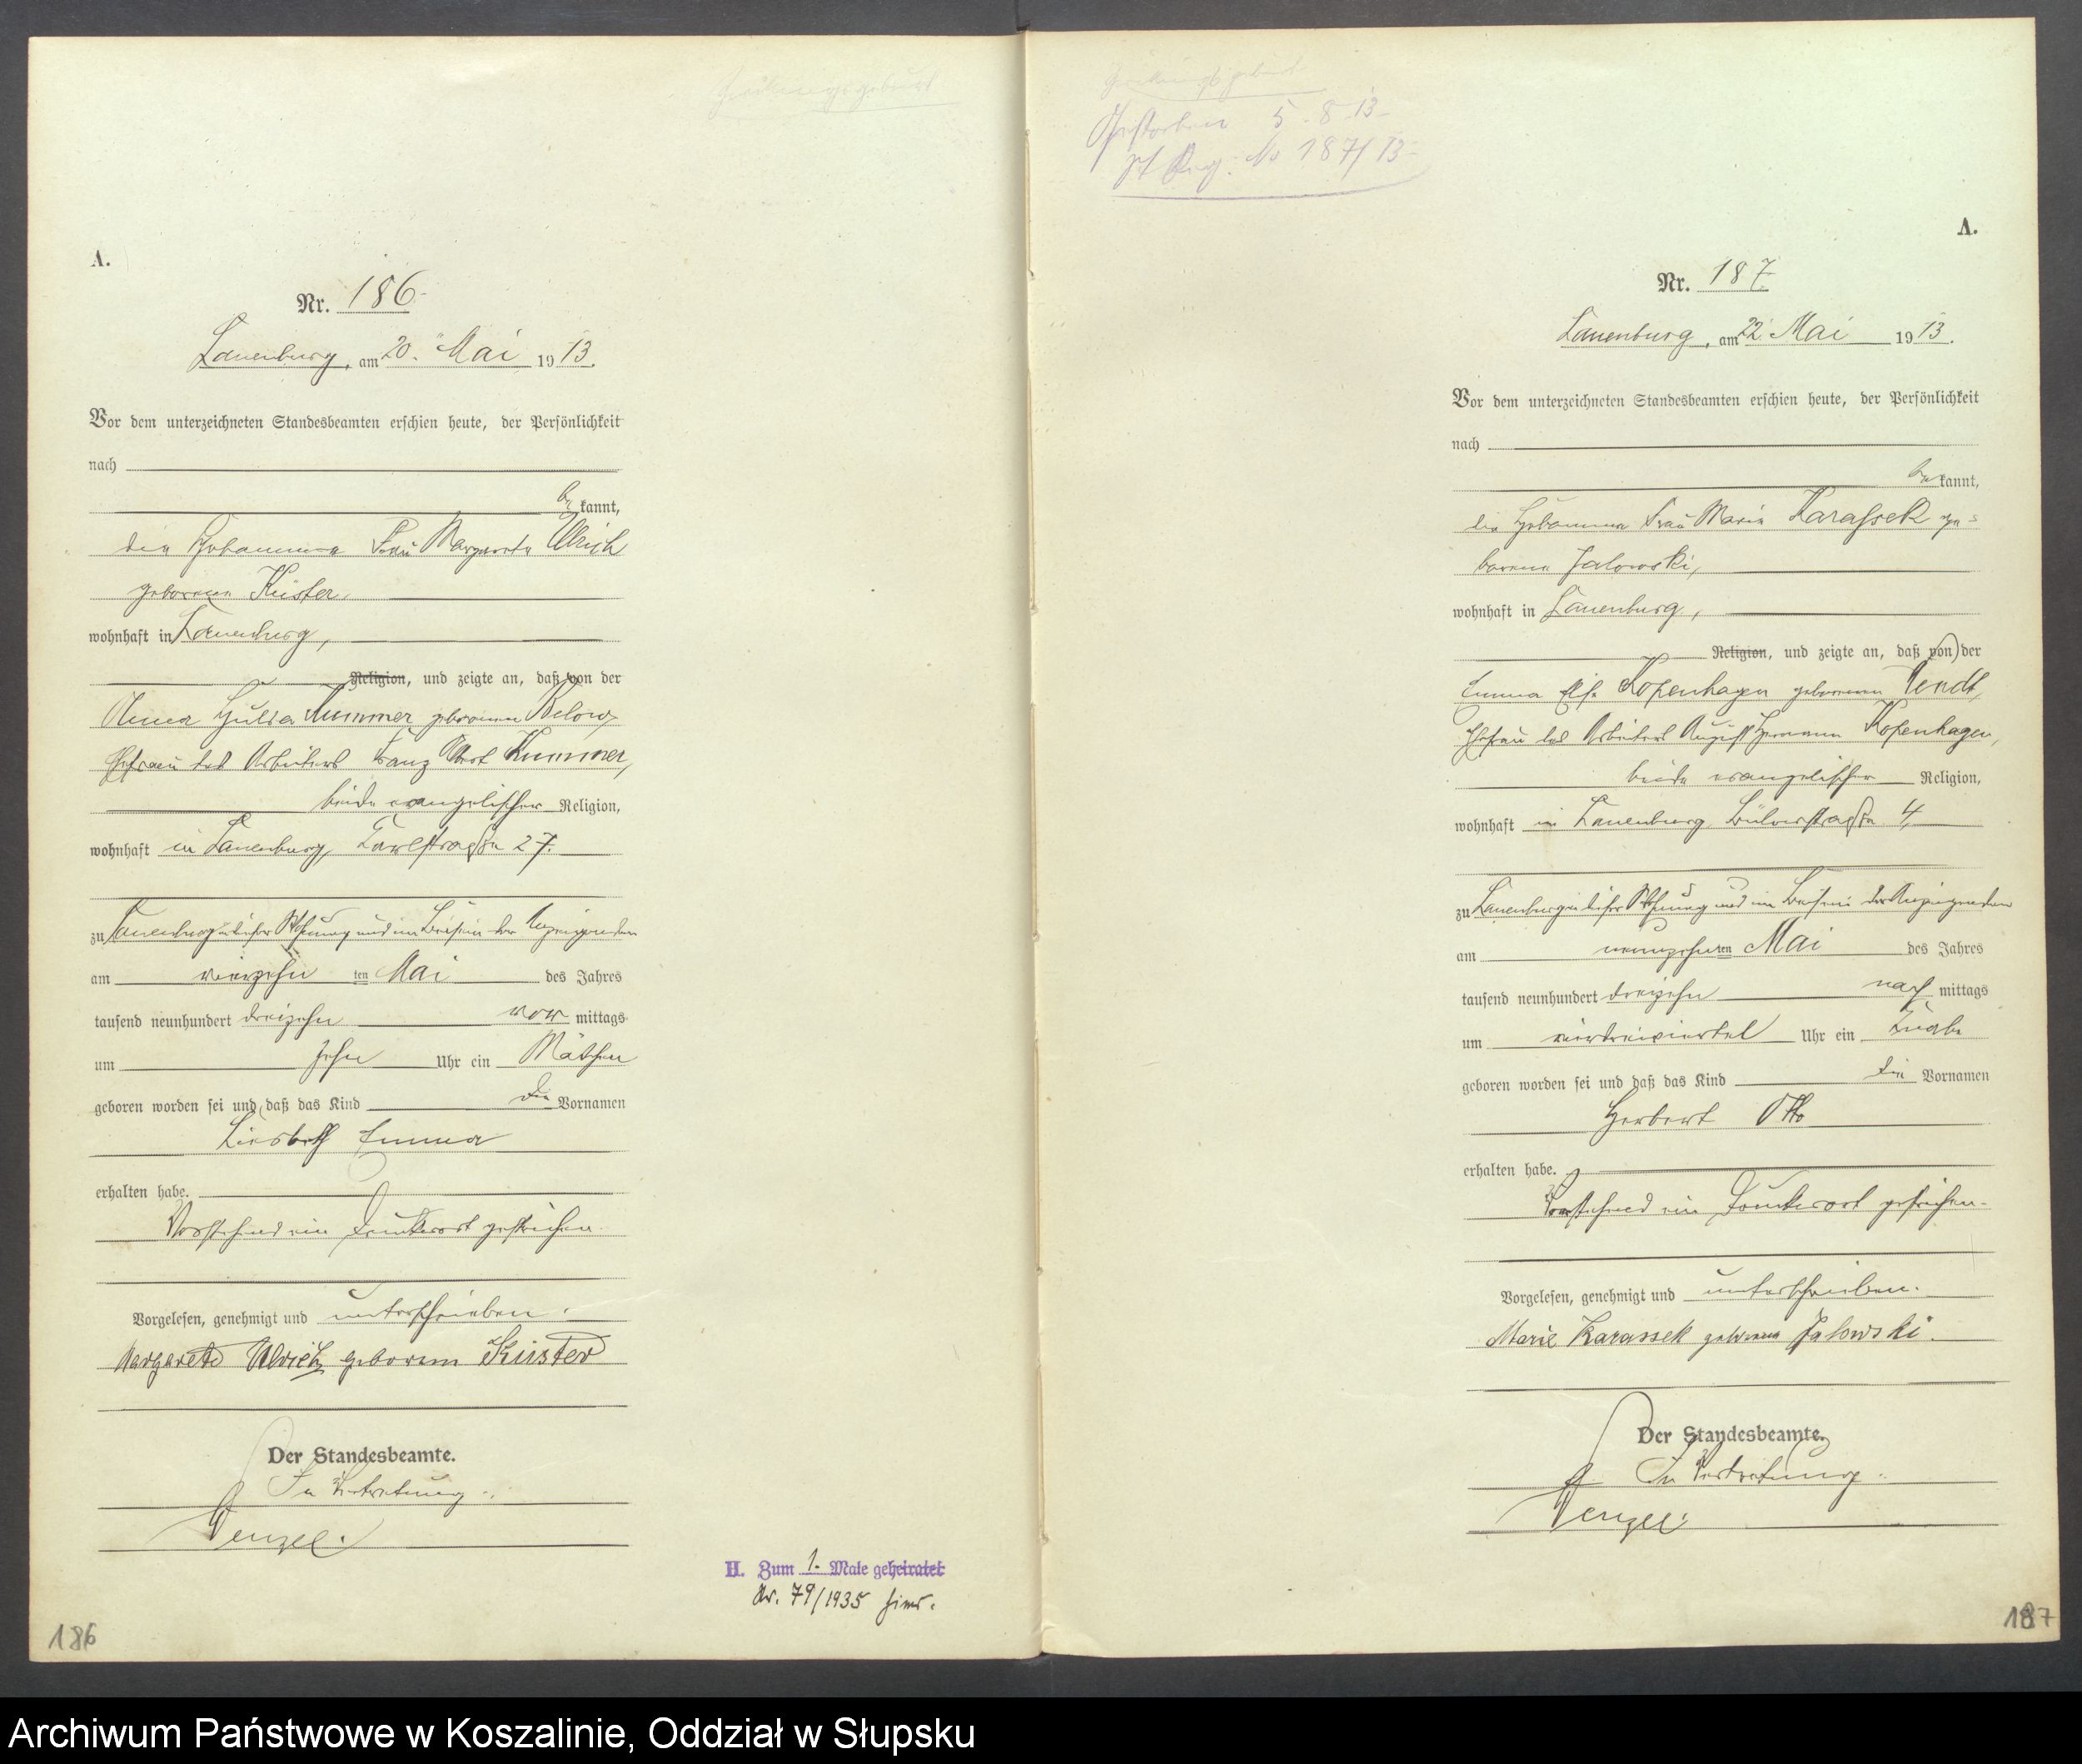 A.
Nr. 186.
Lauenburg, am 20. Mai 1913.
Vor dem unterzeichneten Standesbeamten erschien heute, der Persönlichkeit
nach
be kannt,
die Hebamme Frau Margarete Ulrich
geborene Küster,
wohnhaft in Lauenburg,
Religion, und zeigte an, daß von der
Kummer geborenen Below,
Ehefrau des Arbeiters Franz Kummer,
beide evangelischer Religion,
wohnhaft in Lauenburg, 27.
zu Lauenburg in dieser Wohnung und im Beisein der Anzeigenden
am vierzehn ten Mai des Jahres
tausend neunhundert dreizehn vor mittags
um zehn Uhr ein Mädchen
geboren worden sei und daß das Kind die Vornamen
Liesbeth Emma
erhalten habe.
Vorstehend ein Druckwort gestrichen.
Vorgelesen, genehmigt und unterschrieben.
Margarete Ulrich geborene Küster
Der Standesbeamte.
In Vertretung.
Wenzel.
H. Zum 1. Male geheiratet
Nr. 79/1935 hier.
186
Gestorben 5.8.13
St Reg. No 187/13
A.
Nr. 187.
Lauenburg, am 22. Mai 1913.
Vor dem unterzeichneten Standesbeamten erschien heute, der Persönlichkeit
nach
be kannt,
die Hebamme Frau Marie Karassek ge-
borene Jalowski,
wohnhaft in Lauenburg,
Religion, und zeigte an, daß von der
Emma Kopenhagen geborenen Wendt,
Ehefrau des Arbeiters August Hermann Kopenhagen,
beide evangelischer Religion,
wohnhaft in Lauenburg 4,
zu Lauenburg in dieser Wohnung und im Beisein der Anzeigenden
am neunzehnten Mai des Jahres
tausend neunhundert dreizehn nach mittags
um vierdreiviertel Uhr ein Knabe
geboren worden sei und daß das Kind die Vornamen
Herbert Otto
erhalten habe.
Vorstehend ein Druckwort gestrichen.
Vorgelesen, genehmigt und unterschrieben.
Marie Karassek geborene Jalowski.
Der Standesbeamte.
In Vertretung.
Wenzel.
187
Archiwum Państwowe w Koszalinie, Oddział w Słupsku